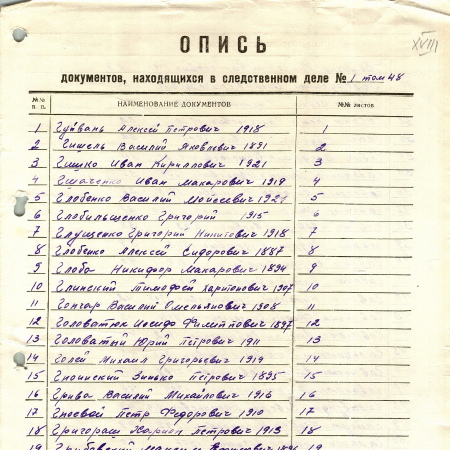 XVIII
ОПИСЬ
документов, находящихся в следственном деле № 1 том 48
№№ п. п. НАИМЕНОВАНИЕ ДОКУМЕНТОВ №№ листов
1 Гудвань Алексей Петрович 1918 1
2 Гишель Василий Яковлевич 1891 2
3 Гишко Иван Кириллович 1921 3
4 Иван Макарович 1919 4
5 Глобенко Василий Моисеевич 1921 5
6 Глобильщенко Григорий 1915 6
7 Глущенко Григорий Никитович 1918 7
8 Глобенко Алексей Сидорович 1887 8
9 Глоба Никифор Макарович 1894 9
10 Глинский Тимофей Харитонович 1907 10
11 Гончар Василий Омельянович 1908 11
12 Головатюк Иосиф Филиппович 1897 12
13 Головатый Юрий Петрович 1911 13
14 Голей Михаил Григорьевич 1919 14
15 Зинько Петрович 1895 15
16 Грива Василий Михайлович 1916 16
17 Гнеевой Петр Федорович 1910 17
18 Григораш Петрович 1913 18
19 19